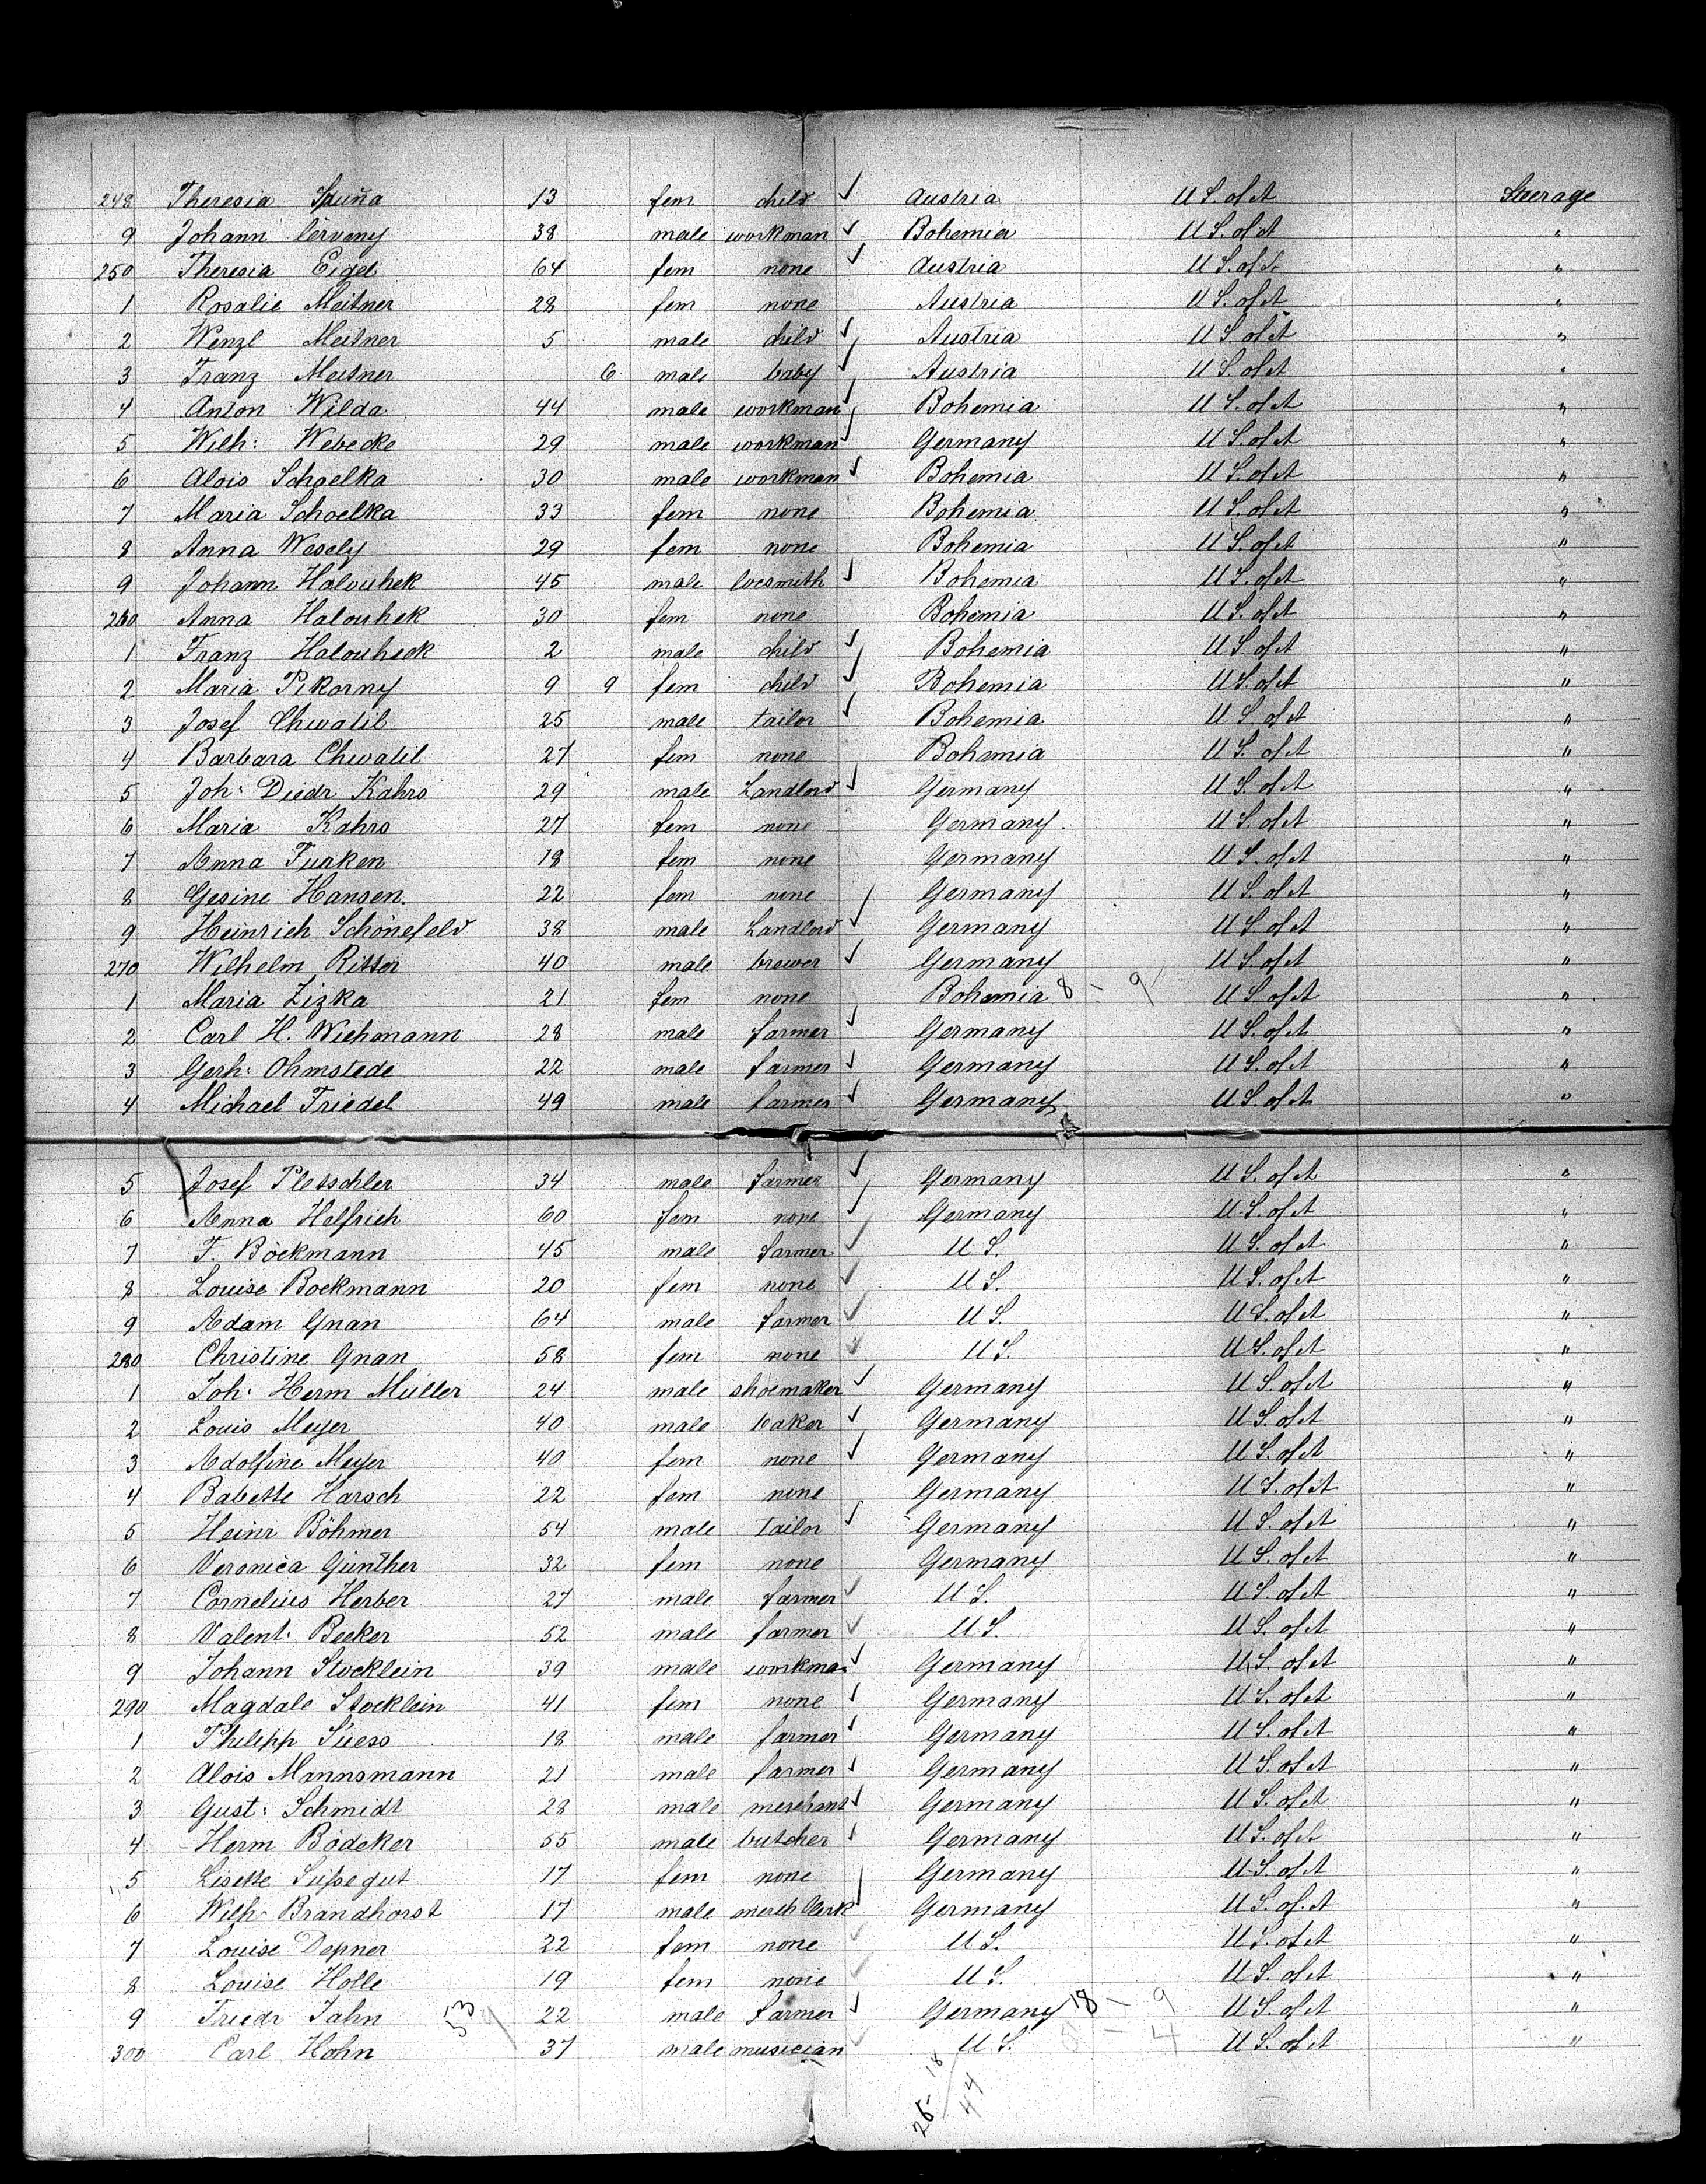 248 Theresia Spuña 13 fem child ✓ Austria U S. of A Steerage
9 Johann Cerveny 38 male workman ✓ Bohemia U S. of A "
250 Theresia Eigel 64 fem none ✓ Austria U S. of A "
1 Rosalie Meitner 28 fem none Austria U S. of A "
2 Wenzl Meitner 5 male child ✓ Austria U S. of A "
3 Franz Meitner 6 male baby ✓ Austria U S. of A "
4 Anton Wilda 44 male workman ✓ Bohemia U S. of A "
5 Wilh: Webecke 29 male workman ✓ Germany U S. of A "
6 Alois Schoelka 30 male workman ✓ Bohemia U S. of A "
7 Maria Schoelka 33 fem none Bohemia U S. of A "
8 Anna Wesely 29 fem none Bohemia U S. of A "
9 Johann Halouhek 45 male locsmith ✓ Bohemia U S. of A "
260 Anna Halouhek 30 fem none Bohemia U S. of A "
1 Franz Halouheck 2 male child ✓ Bohemia U S. of A "
2 Maria Pikorny 9 9 fem child ✓ Bohemia U S. of A "
3 Josef Chwatil 25 male tailor ✓ Bohemia U S. of A "
4 Barbara Chwatil 27 fem none Bohemia U S. of A "
5 Joh: Diedr Kahrs 29 male Landlord ✓ Germany U S. of A "
6 Maria Kahrs 27 fem none Germany U S. of A "
7 Anna Furken 18 fem none Germany U S. of A "
8 Gesine Hansen 22 fem none Germany U S. of A "
9 Heinrich Schönefeld 38 male Landlord ✓ Germany U S. of A "
270 Wilhelm Ritter 40 male brewer ✓ Germany U S. of A "
1 Maria Zizka 21 fem none Bohemia 8 - 9 U S. of A "
2 Carl H. Wichmann 28 male farmer ✓ Germany U S. of A "
3 Gerh: Ohmstede 22 male farmer ✓ Germany U S. of A "
4 Michael Friedel 49 male farmer ✓ Germany U S. of A "
5 Josef Pletschler 34 male farmer ✓ Germany U S. of A "
6 Anna Helfrich 60 fem none ✓ Germany U S. of A "
7 F. Böckmann 45 male farmer ✓ U S. U S. of A "
8 Louise Bockmann 20 fem none ✓ U S. U S. of A "
9 Adam Gnan 64 male farmer ✓ U S. U S. of A "
280 Christine Gnan 58 fem none ✓ U S. U S. of A "
1 Joh: Herm Müller 24 male shoemaker ✓ Germany U S. of A "
2 Louis Meyer 40 male baker ✓ Germany U S. of A "
3 Adolfine Meyer 40 fem none ✓ Germany U S. of A "
4 Babette Harsch 22 fem none Germany U S. of A "
5 Heinr Böhmer 54 male Tailor ✓ Germany U S. of A "
6 Veronica Günther 32 fem none Germany U S. of A "
7 Cornelius Herber 27 male farmer ✓ U S. U S. of A "
8 Valent: Becker 52 male farmer ✓ U S. U S. of A "
9 Johann Stocklein 39 male workman ✓ Germany U S. of A "
290 Magdale Stocklein 41 fem none ✓ Germany U S. of A "
1 Philipp Suess 18 male farmer ✓ Germany U S. of A "
2 Alois Mannsmann 21 male farmer ✓ Germany U S. of A "
3 Gust: Schmidt 28 male merchant ✓ Germany U S. of A "
4 Herm Bödeker 55 male butcher ✓ Germany U S. of A "
5 Lisette Süßegut 17 fem none Germany U S. of A "
6 Wilh. Brandhorst 17 male merch Clerk Germany U S. of A "
7 Louise Depner 22 fem none ✓ U S. U S. of A "
8 Louise Holle 19 fem none ✓ U S. U S. of A "
9 Friedr Jahn 53 9 22 male farmer ✓ Germany 18 - 9 U S. of A "
300 Carl Hohn 37 male musician ✓ U S. - 4 U S. of A "
26 - 18
44